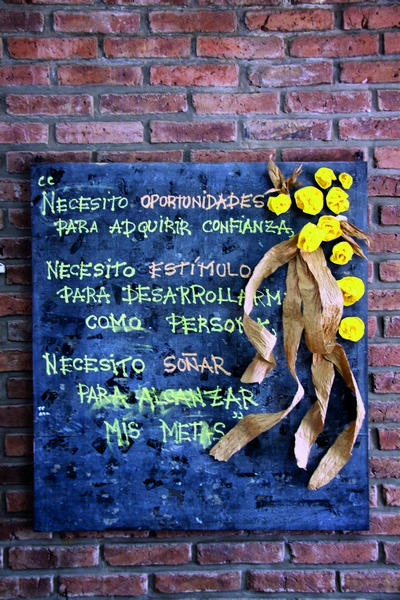 “
NECESITO OPORTUNIDADES
PARA ADQUIRIR CONFIANZA,
NECESITO ESTÍMULO
PARA DESARROLLARM
COMO PERSONA,
NECESITO SOÑAR
PARA ALCANZAR
MIS METAS”